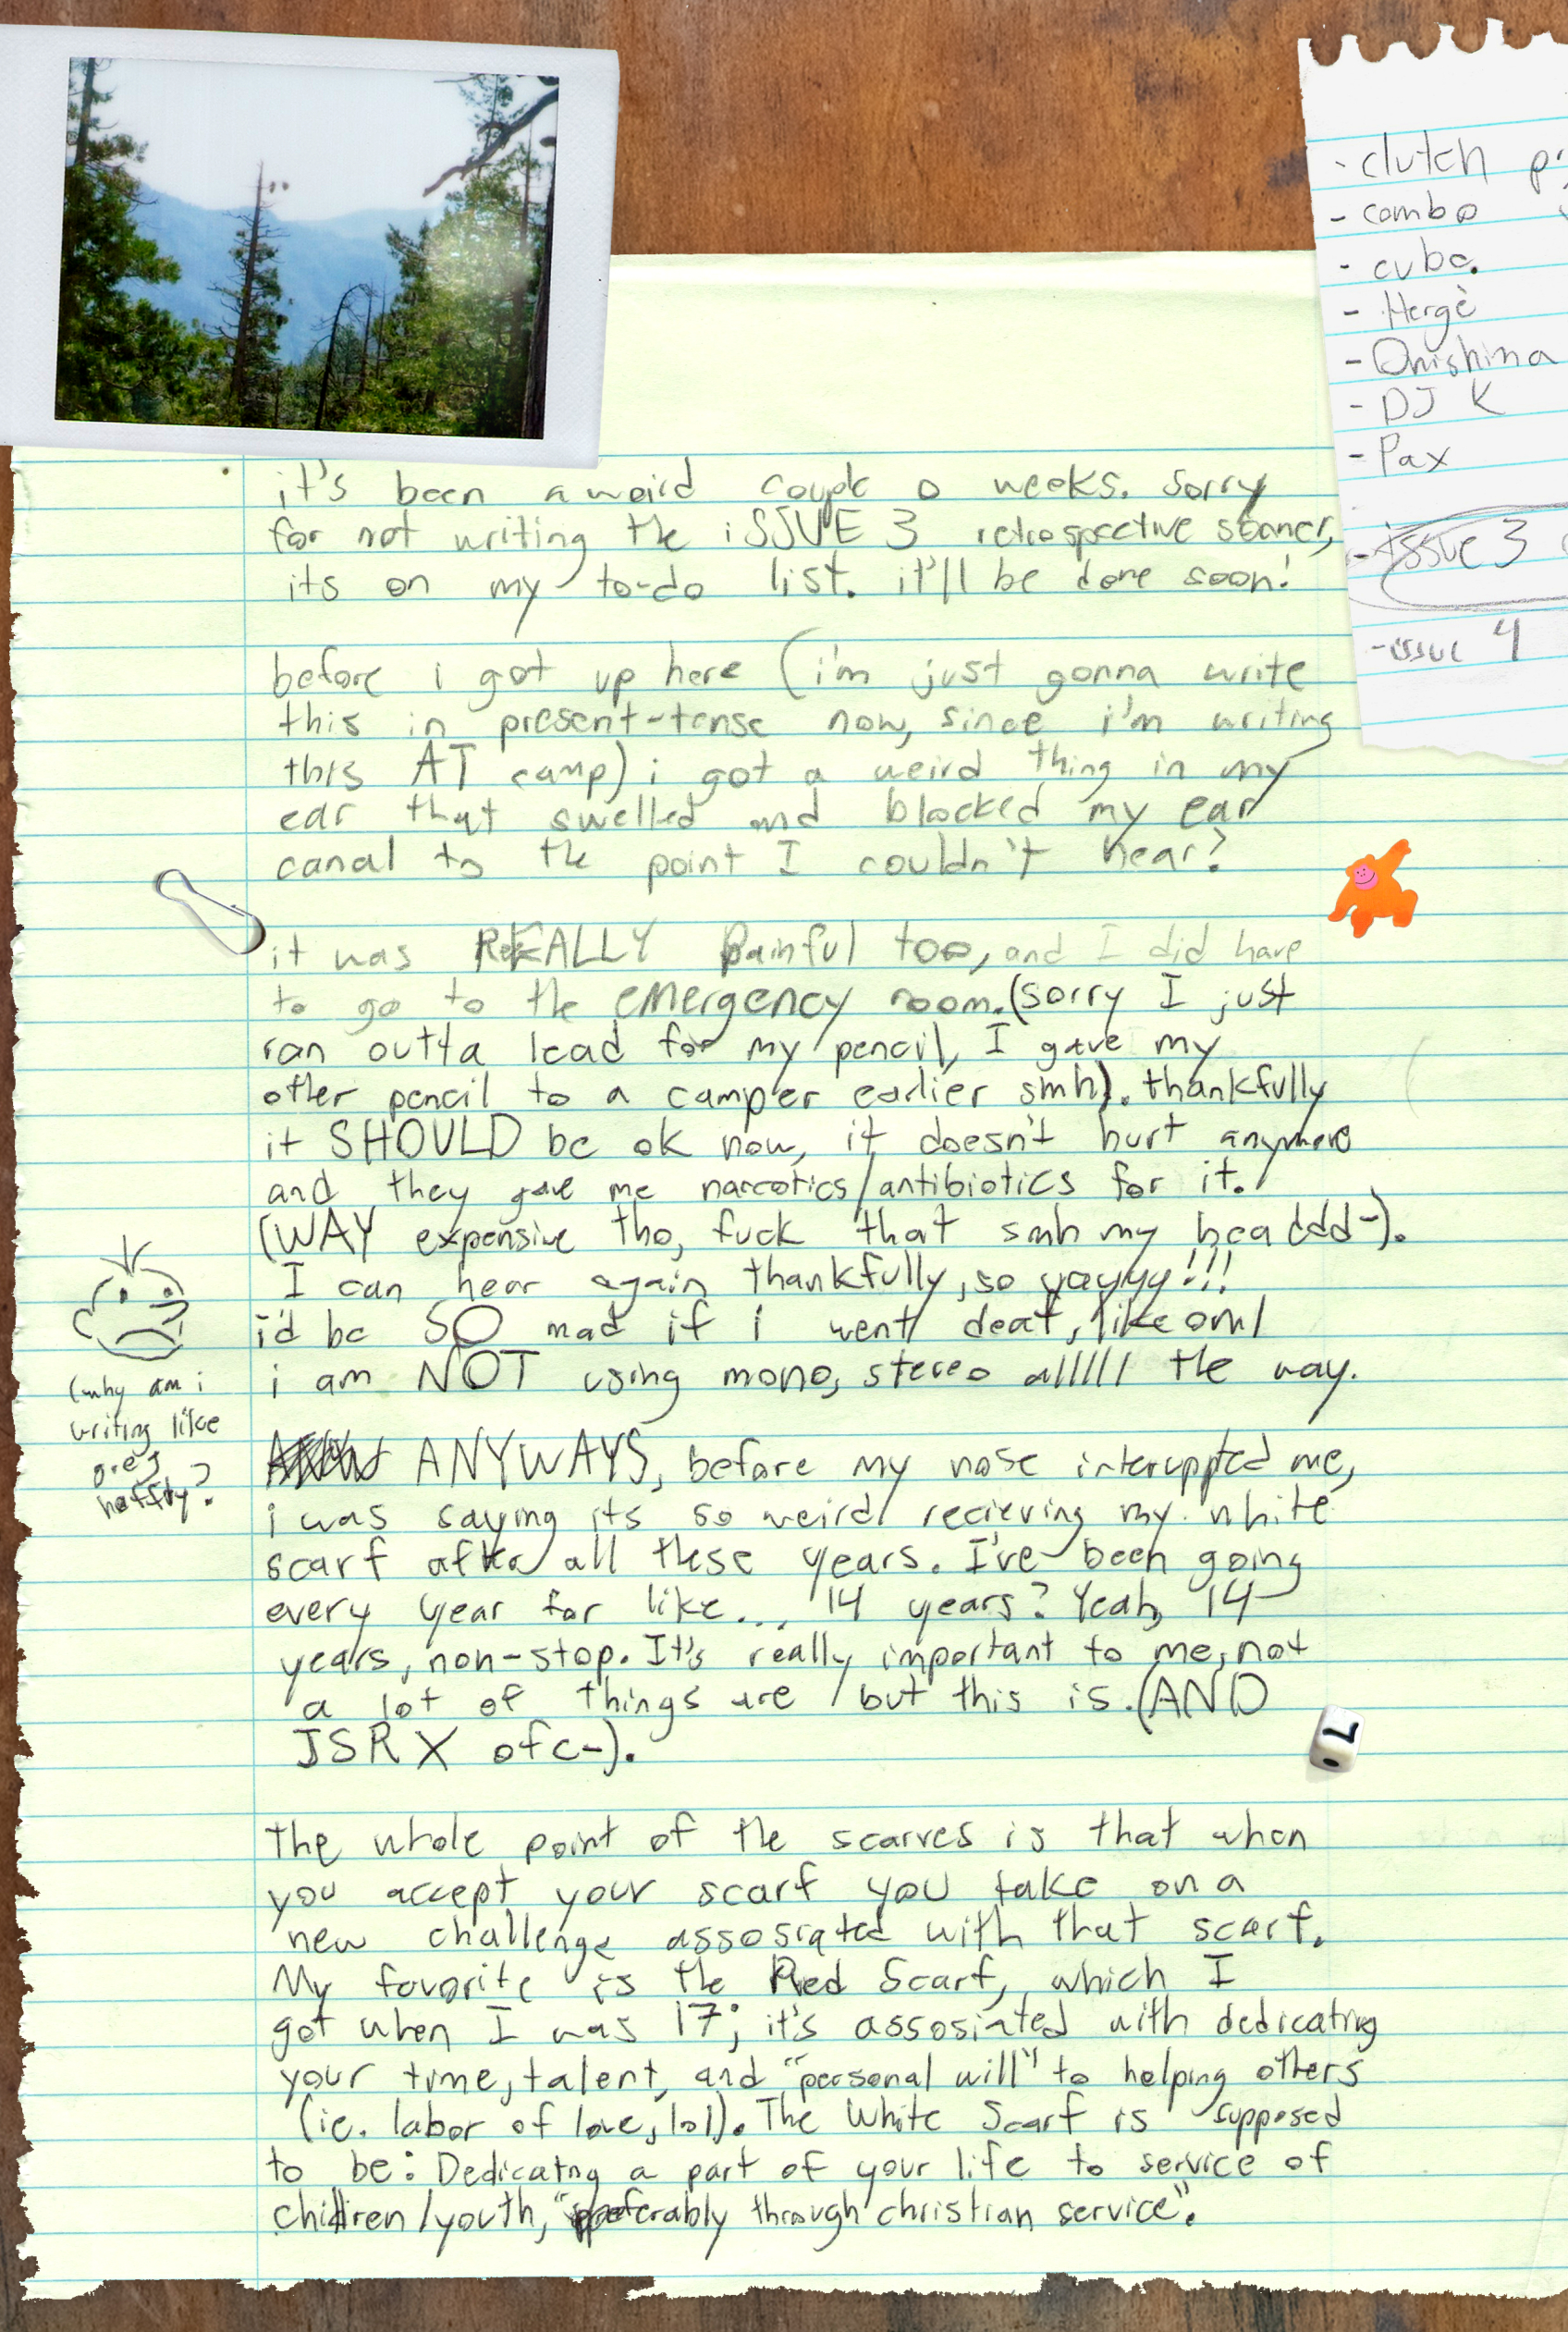 it's been a weird couple o weeks. sorry
for not writing the iSSUE 3 retrospective sooner,
its on my to-do list. it'll be done soon!
before i got up here (i'm just gonna write
this in present-tense now, since i'm writing
this AT camp) i got a weird thing in my
ear that swelled and blocked my ear
canal to the point I couldn't hear?
it was REALLY painful too, and I did have
to go to the emergency room. (sorry I just
ran outta lead for my pencil, I gave my
other pencil to a camper earlier smh). thankfully
it SHOULD be ok now, it doesn't hurt anymore
and they gave me narcotics/antibiotics for it.
(WAY expensive tho, fuck that smh my headdd-).
I can hear again thankfully, so yayyyy!!!
i'd be SO mad if i went deaf, like oml
i am NOT using mono, stereo alllll the way.
ANYWAYS, before my nose interuppted me,
i was saying its so weird recieving my white
scarf after all these years. I've been going
every year for like... 14 years? Yeah, 14
years, non-stop. It's really important to me, not
a lot of things are but this is. (AND
JSRX ofc-).
The whole point of the scarves is that when
you accept your scarf you take on a
new challenge assosiated with that scarf.
My favorite is the Red Scarf, which I
got when I was 17; it's assosiated with dedicating
your time, talent, and "personal will" to helping others
(ie. labor of love, lol). The White Scarf is supposed
to be: Dedicatng a part of your life to service of
children/youth, "preferably through christian service".
(why am i
writing like
greg
heffty?
- clutch
- combo
- cube
- Hergè
- Onishima
- DJ K
- Pax
- issue 3
- issue 4
7